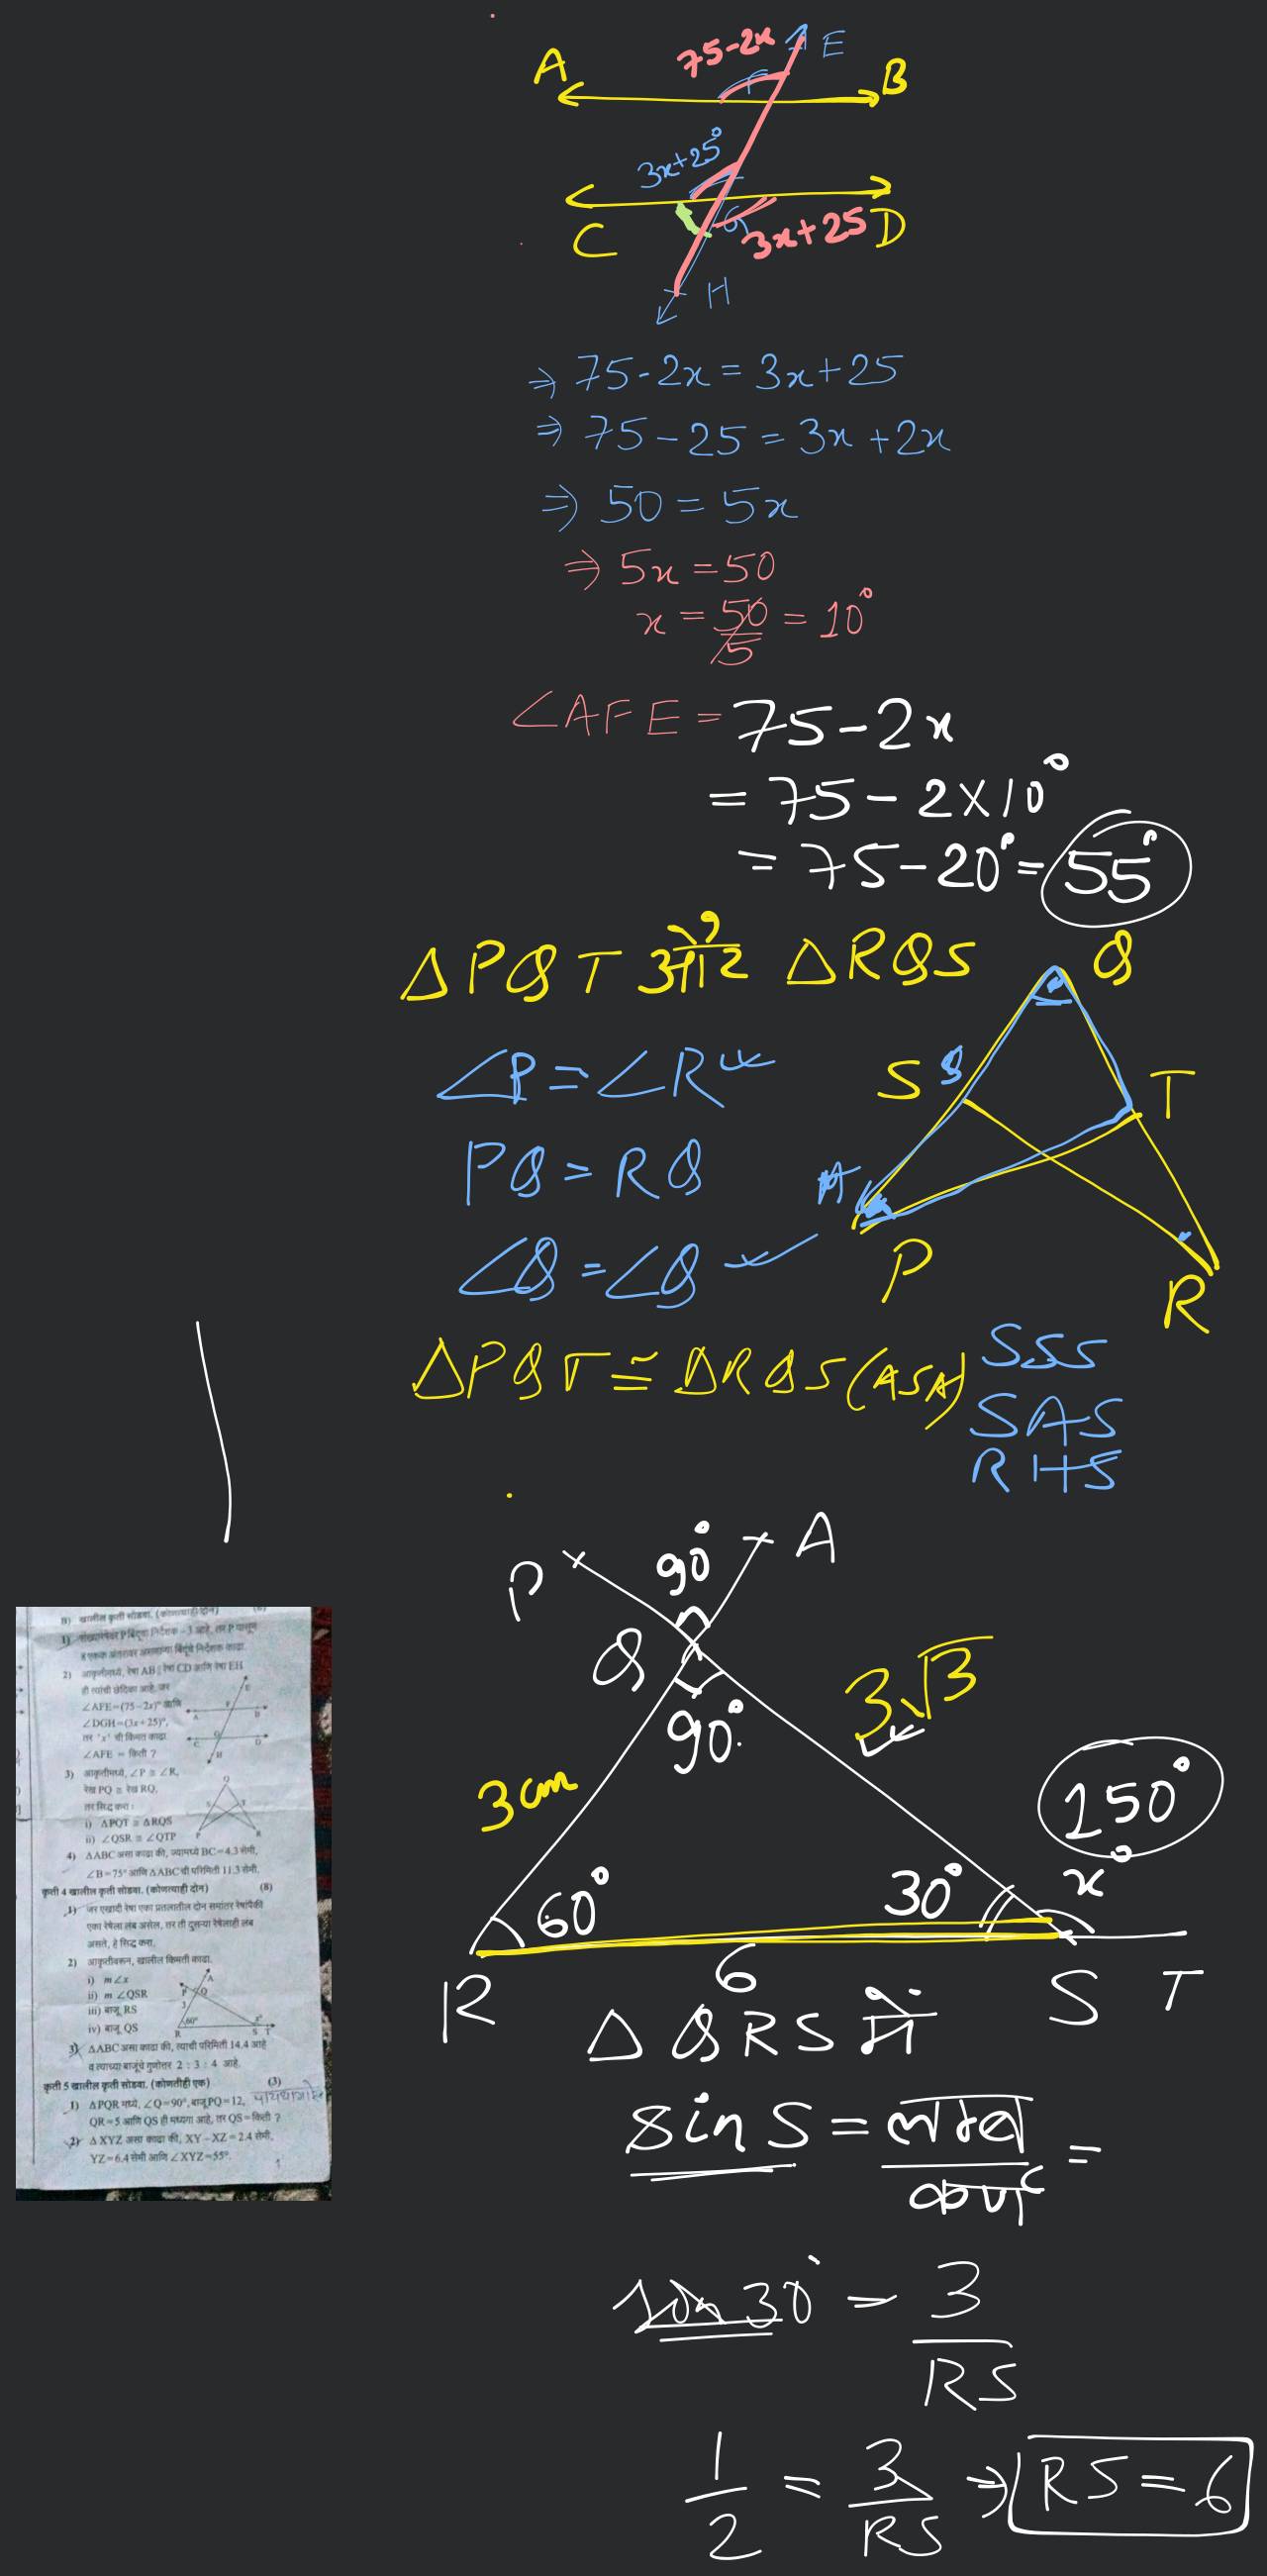 75-2x
E
A
B
F
3x+25°
C
G
3x+25
D
H
⇒ 75-2x = 3x+25
⇒ 75-25 = 3x+2x
⇒ 50 = 5x
⇒ 5x = 50
x = 50/5 = 10°
∠AFE = 75-2x
= 75-2×10°
= 75-20° = 55°
△PQT और △RQS
Q
∠P = ∠R
S
S
T
PQ = RQ
A
∠Q = ∠Q
P
R
△PQT ≅ △RQS (ASA)
SSS
SAS
RHS
P
90°
A
Q
3√3
90°
3cm
150°
x°
60°
30°
R
6
S
T
△QRS में
sin S = लम्ब/कर्ण =
sin 30° = 3/RS
1/2 = 3/RS ⇒ RS = 6
B) खालील कृती सोडवा. (कोणत्याही दोन)
1) संख्यारेषेवर P बिंदूचा निर्देशक -3 आहे, तर P पासून
2) आकृतीमध्ये, रेषा AB || रेषा CD आणि रेषा EH
ही त्यांची छेदिका आहे, जर
∠AFE=(75-2x)° आणि
∠DGH=(3x+25)°,
तर 'x' ची किंमत काढा
∠AFE = किती ?
3) आकृतीमध्ये, ∠P ≅ ∠R,
रेख PQ ≅ रेख RQ,
तर सिद्ध करा :
i) △PQT ≅ △RQS
ii) ∠QSR ≅ ∠QTP
4) △ABC असा काढा की, ज्यामध्ये BC=4.3 सेमी,
∠B=75° आणि △ABC ची परिमिती 11.3 सेमी.
कृती 4 खालील कृती सोडवा. (कोणत्याही दोन) (8)
1) जर एखादी रेषा एका प्रतलातील दोन समांतर रेषांपैकी
एका रेषेला लंब असेल, तर ती दुसऱ्या रेषेलाही लंब
असते, हे सिद्ध करा.
2) आकृतीवरून, खालील किमती काढा.
i) m∠x
ii) m ∠QSR
iii) बाजू RS
iv) बाजू QS
3) △ABC असा काढा की, त्याची परिमिती 14.4 आहे
व त्याच्या बाजूंचे गुणोत्तर 2 : 3 : 4 आहे.
कृती 5 खालील कृती सोडवा. (कोणतीही एक) (3)
1) △PQR मध्ये, ∠Q=90°, बाजू PQ=12,
QR=5 आणि QS ही मध्यगा आहे, तर QS=किती ?
2) △XYZ असा काढा की, XY-XZ=2.4 सेमी,
YZ=6.4 सेमी आणि ∠XYZ=55°.